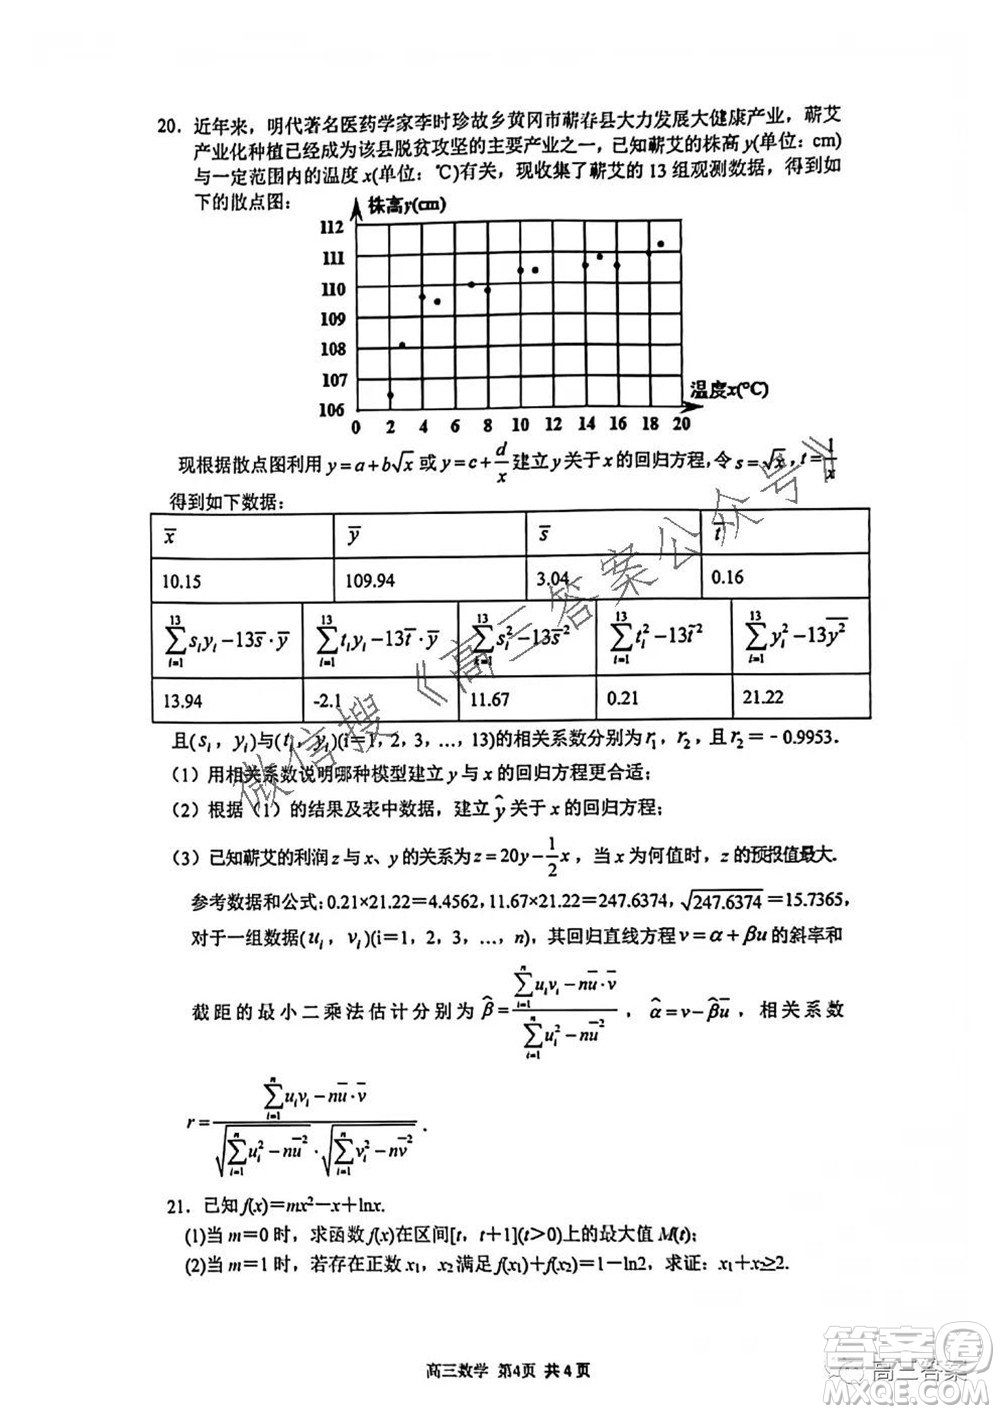 20. 近年来，明代著名医药学家李时珍故乡黄冈市蕲春县大力发展大健康产业，蕲艾
产业化种植已经成为该县脱贫攻坚的主要产业之一，已知蕲艾的株高 y(单位：cm)
与一定范围内的温度 x(单位：℃)有关，现收集了蕲艾的 13 组观测数据，得到如
下的散点图：
株高y(cm)
112
111
110
109
108
107
106
0 2 4 6 8 10 12 14 16 18 20
温度x(°C)
现根据散点图利用 y=a+b√x 或 y=c+d/x 建立 y 关于 x 的回归方程,令 s=√x, t=1/x
得到如下数据：
x̄ ȳ s̄ t̄
10.15 109.94 3.04 0.16
∑_{i=1}^{13} s_i y_i −13s̄·ȳ ∑_{i=1}^{13} t_i y_i −13t̄·ȳ ∑_{i=1}^{13} s_i²−13s̄² ∑_{i=1}^{13} t_i²−13t̄² ∑_{i=1}^{13} y_i²−13ȳ²
13.94 -2.1 11.67 0.21 21.22
且(s_i，y_i)与(t_i，y_i)(i=1，2，3，…，13)的相关系数分别为 r₁，r₂，且 r₂=－0.9953．
（1）用相关系数说明哪种模型建立 y 与 x 的回归方程更合适；
（2）根据（1）的结果及表中数据，建立 ŷ 关于 x 的回归方程；
（3）已知蕲艾的利润 z 与 x、y 的关系为 z=20y−1/2 x，当 x 为何值时，z 的预报值最大.
参考数据和公式:0.21×21.22=4.4562,11.67×21.22=247.6374,√247.6374=15.7365,
对于一组数据(u_i，v_i)(i=1，2，3，…，n)，其回归直线方程 v=α+βu 的斜率和
截距的最小二乘法估计分别为 β̂=(∑_{i=1}^{n} u_i v_i − nū·v̄)/(∑_{i=1}^{n} u_i² − nū²)，α̂=v−β̂ū，相关系数
r=(∑_{i=1}^{n} u_i v_i − nū·v̄)/(√(∑_{i=1}^{n} u_i² − nū²)·√(∑_{i=1}^{n} v_i² − nv̄²)).
21．已知 f(x)=mx²−x+lnx.
(1)当 m=0 时，求函数 f(x)在区间[t，t+1](t>0)上的最大值 M(t);
(2)当 m=1 时，若存在正数 x₁，x₂ 满足 f(x₁)+f(x₂)=1−ln2，求证：x₁+x₂≥2.
高三数学 第4页 共4页
微信搜《高三答案公众号》
高三答案
答案圈
MXQE.COM